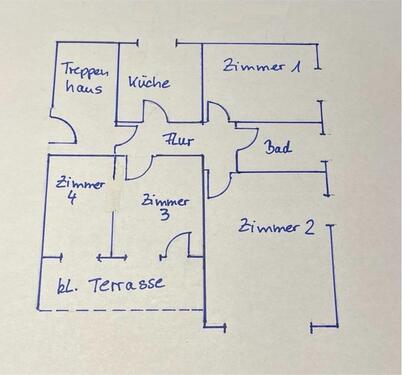 Treppen
haus
Küche
Zimmer 1
Flur
Bad
Zimmer
4
Zimmer
3
Zimmer 2
bl. Terrasse